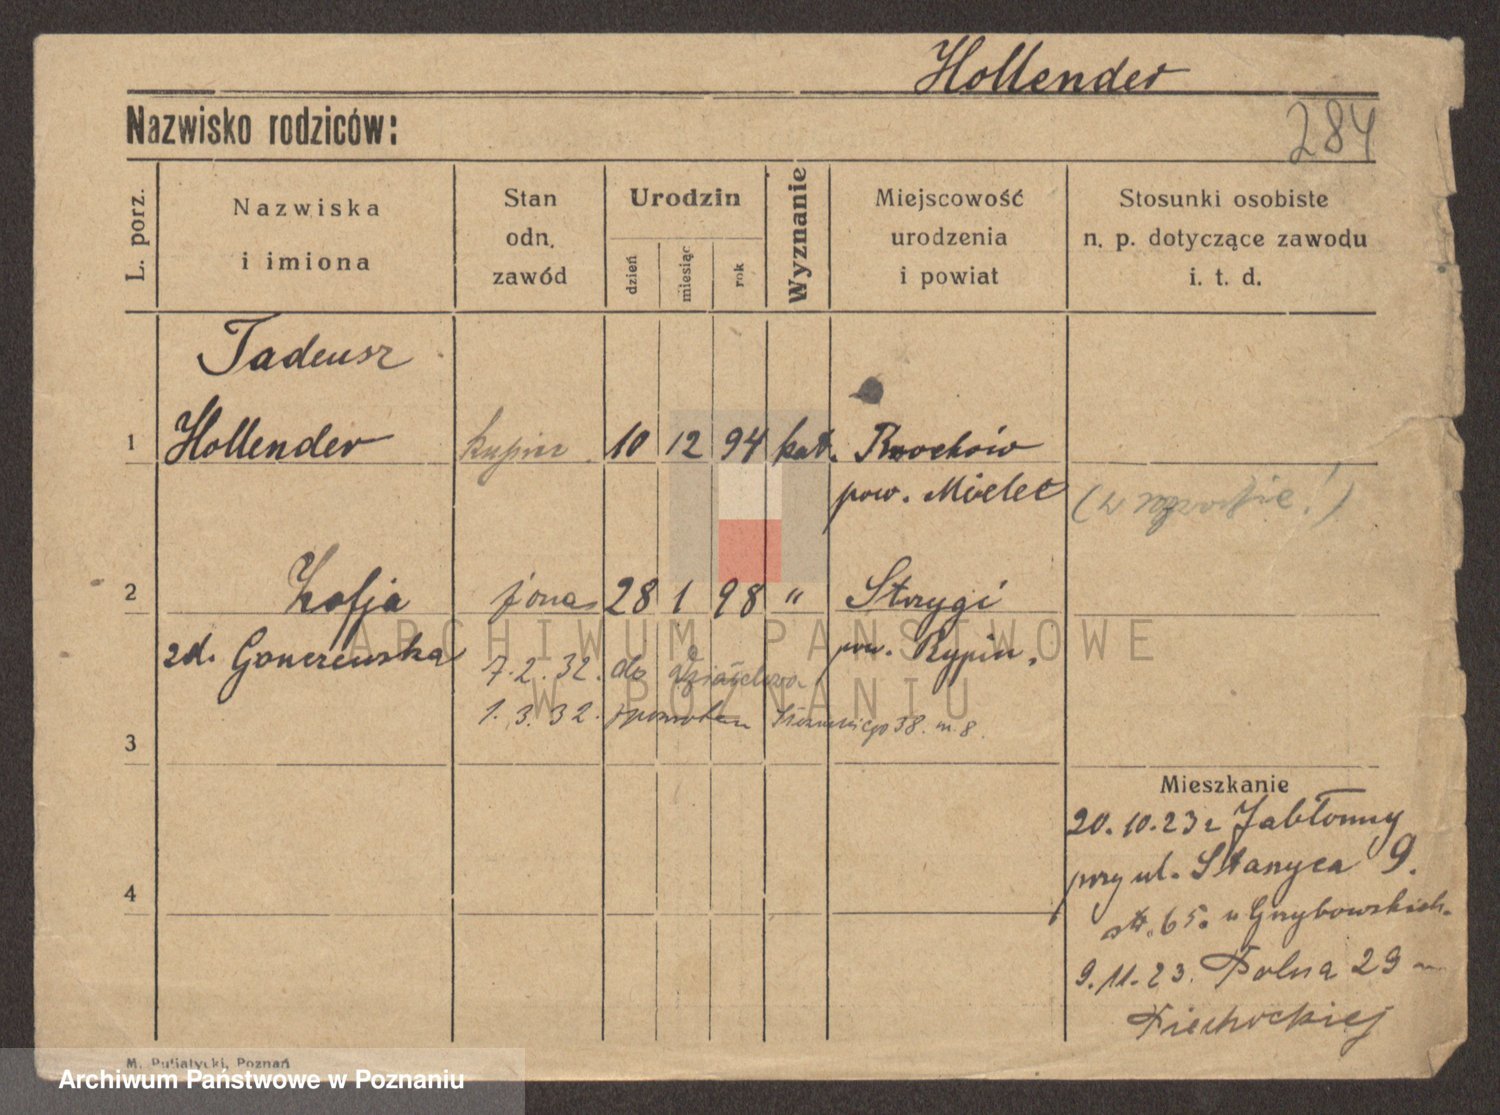 Hollender
Nazwisko rodziców:
284
L. porz.
Nazwiska
i imiona
Stan
odn.
zawód
Urodzin
dzień
miesiąc
rok
Wyznanie
Miejscowość
urodzenia
i powiat
Stosunki osobiste
n. p. dotyczące zawodu
i. t. d.
Tadeusz
1 Hollender kupiec 10 12 94 kat.
pow. Mielec
2 Zofja żona 28 1 98 " Strzygi
zd. Gonczewska pow. Rypin.
7.2.32. do
1.3.32. 38. m. 8.
3
Mieszkanie
20.10.23 z Jabłonny
przy ul. Stanyca 9.
4
st. 65. u Grzybowskich.
9.11.23. Polna 29
Piechockiej
M. Putiatycki, Poznań
ARCHIWUM PAŃSTWOWE
W POZNANIU
Archiwum Państwowe w Poznaniu